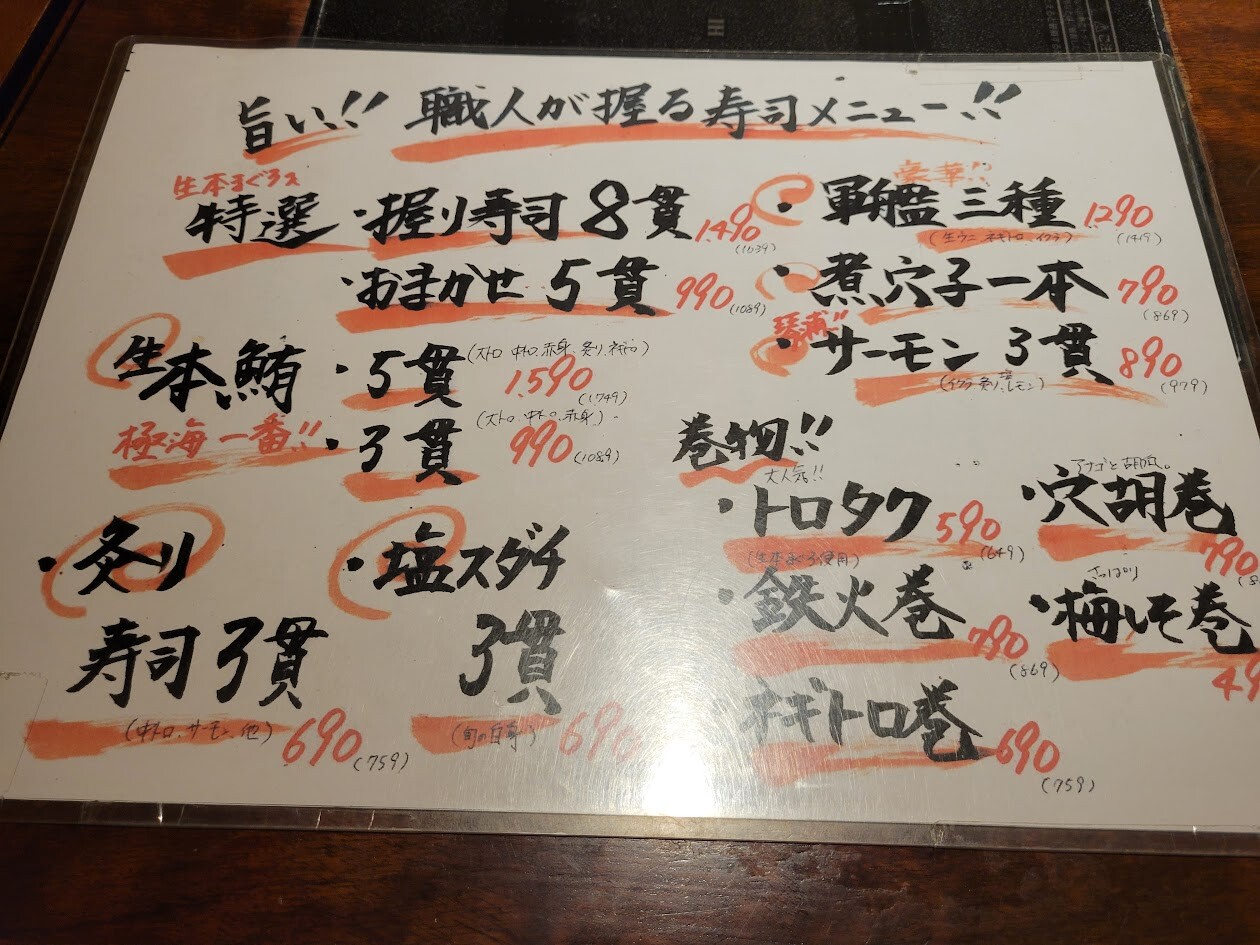 旨い!! 職人が握る寿司メニュー!!
生本まぐろ入
特選・握り寿司 8貫 1,490
(1639)
・おまかせ 5貫 990
(1089)
生本鮪・5貫 (大トロ 中トロ、赤身、炙り、ネギトロ)
1,590
(1749)
極海一番!!
・3貫 (大トロ、中トロ、赤身)
990
(1089)
・炙り
寿司 3貫
(中トロ、サーモン、他) 690
(759)
・塩スダチ
3貫
(旬の白身) 690
豪華!!
・軍艦三種 1,290
(生ウニ ネギトロ、イクラ) (1419)
・煮穴子一本 790
(869)
・サーモン 3貫 890
(イクラ 炙り、塩レモン) (979)
巻物!!
大人気!!
・トロタク 590
(649)
(生本まぐろ使用)
・鉄火巻 790
(869)
ネギトロ巻 690
(759)
アナゴと胡瓜。
・穴胡巻
790
さっぱり
・梅しそ巻
49